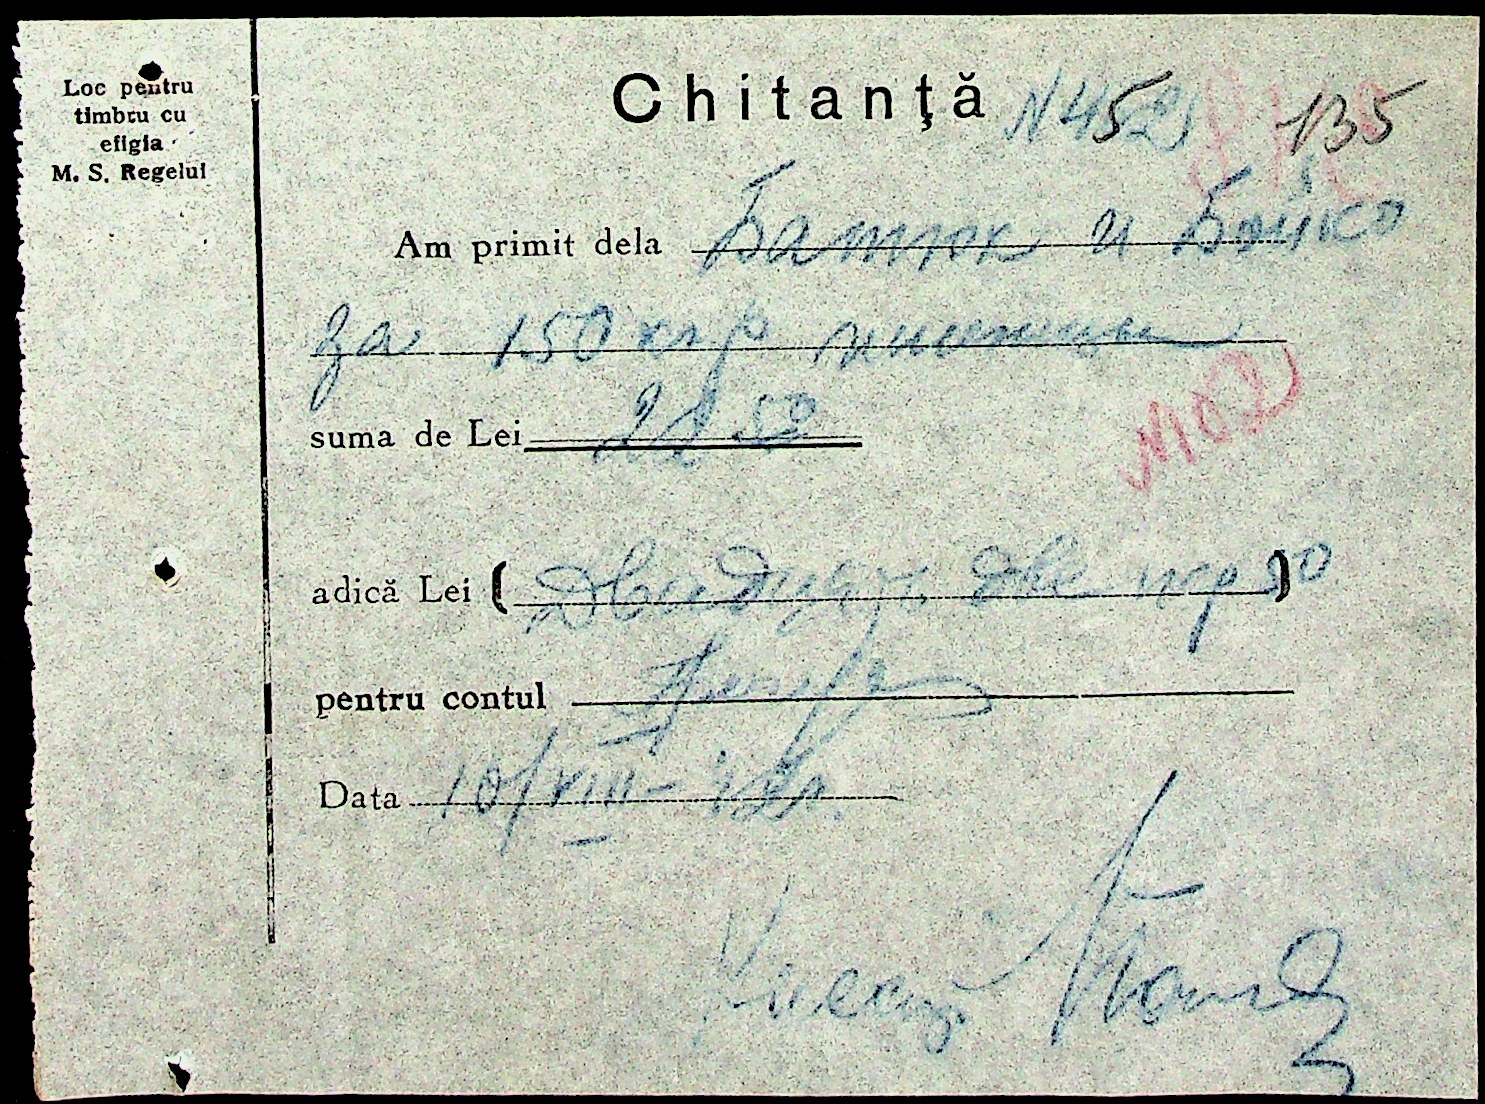 Loc pentru
timbru cu
efigia
M. S. Regelui
Chitanţă N 452 135
Am primit dela Батюк и Бойко
за 150 кгр пшеницы
suma de Lei 22 50
N102
adică Lei ( Двадцать две кр 50 )
pentru contul
Data 10/VIII-42г.